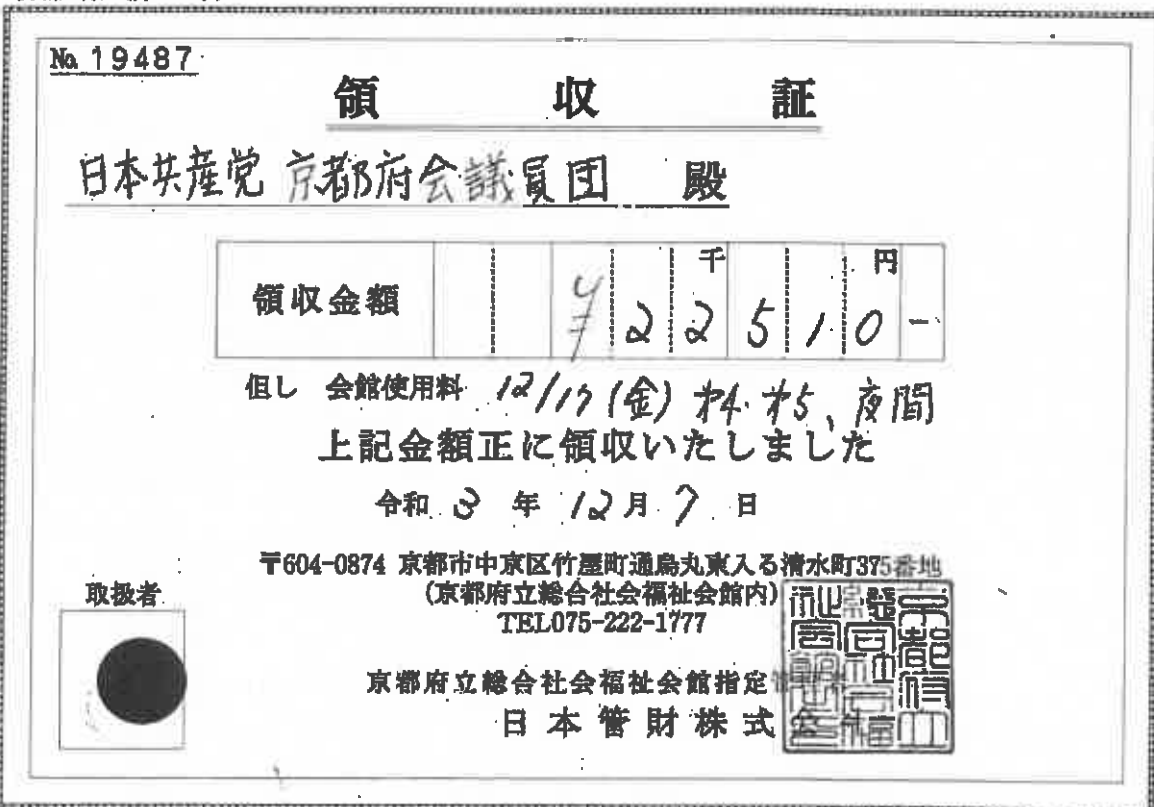 No. 19487
領収証
日本共産党 京都府会議員団 殿
千 円
領収金額 ¥22510-
但し 会館使用料 12/17(金) 才4・才5、夜間
上記金額正に領収いたしました
令和 3 年 12 月 7 日
〒604-0874 京都市中京区竹屋町通烏丸東入る清水町375番地
(京都府立総合社会福祉会館内)
TEL075-222-1777
取扱者
京都府立総合社会福祉会館指定
日本管財株式